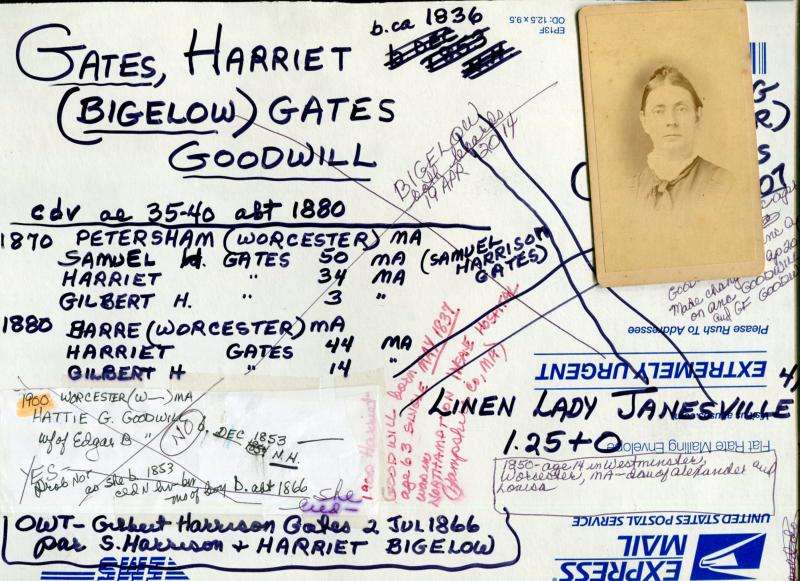 b. ca 1836
b DEC
1853
NH
GATES, HARRIET
(BIGELOW) GATES
GOODWILL
EP13F
OD: 12.5 x 9.5
BIGELOW
19 APR 2014
cdv ae 35-40 abt 1880
1870 PETERSHAM (WORCESTER) MA
SAMUEL H. GATES 50 MA (SAMUEL HARRISON GATES)
HARRIET " 34 MA
GILBERT H. " 3 "
1880 BARRE (WORCESTER) MA
HARRIET GATES 44 MA
GILBERT H " 14 "
Make chang
on anc GOODWILL
Please Rush To Addressee
EXTREMELY URGENT
Flat Rate Mailing Envelope
LINEN LADY JANESVILLE
1.25 + 0
1850 - age 14 in Westminster,
Worcester, MA - dau of alexander and
Louisa
1900 WORCESTER (W—) MA
HATTIE G. GOODWILL
w/of Edgar B "
NO
b. DEC 1853
N.H.
YES-
prob Not
as she b 1853
1900 Harriet
GOODWILL born MAY 1837
age 63 SINGLE
NORTHAMPTON INSANE HOSPITAL
OWT - Gilbert Harrison Gates 2 JUL 1866
par S. Harrison + HARRIET BIGELOW
UNITED STATES POSTAL SERVICE
EXPRESS
MAIL